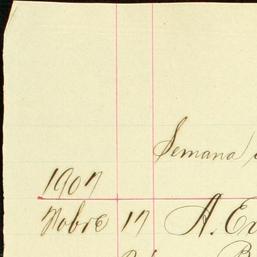 Semana
1907
Nobre 17 A. Ev